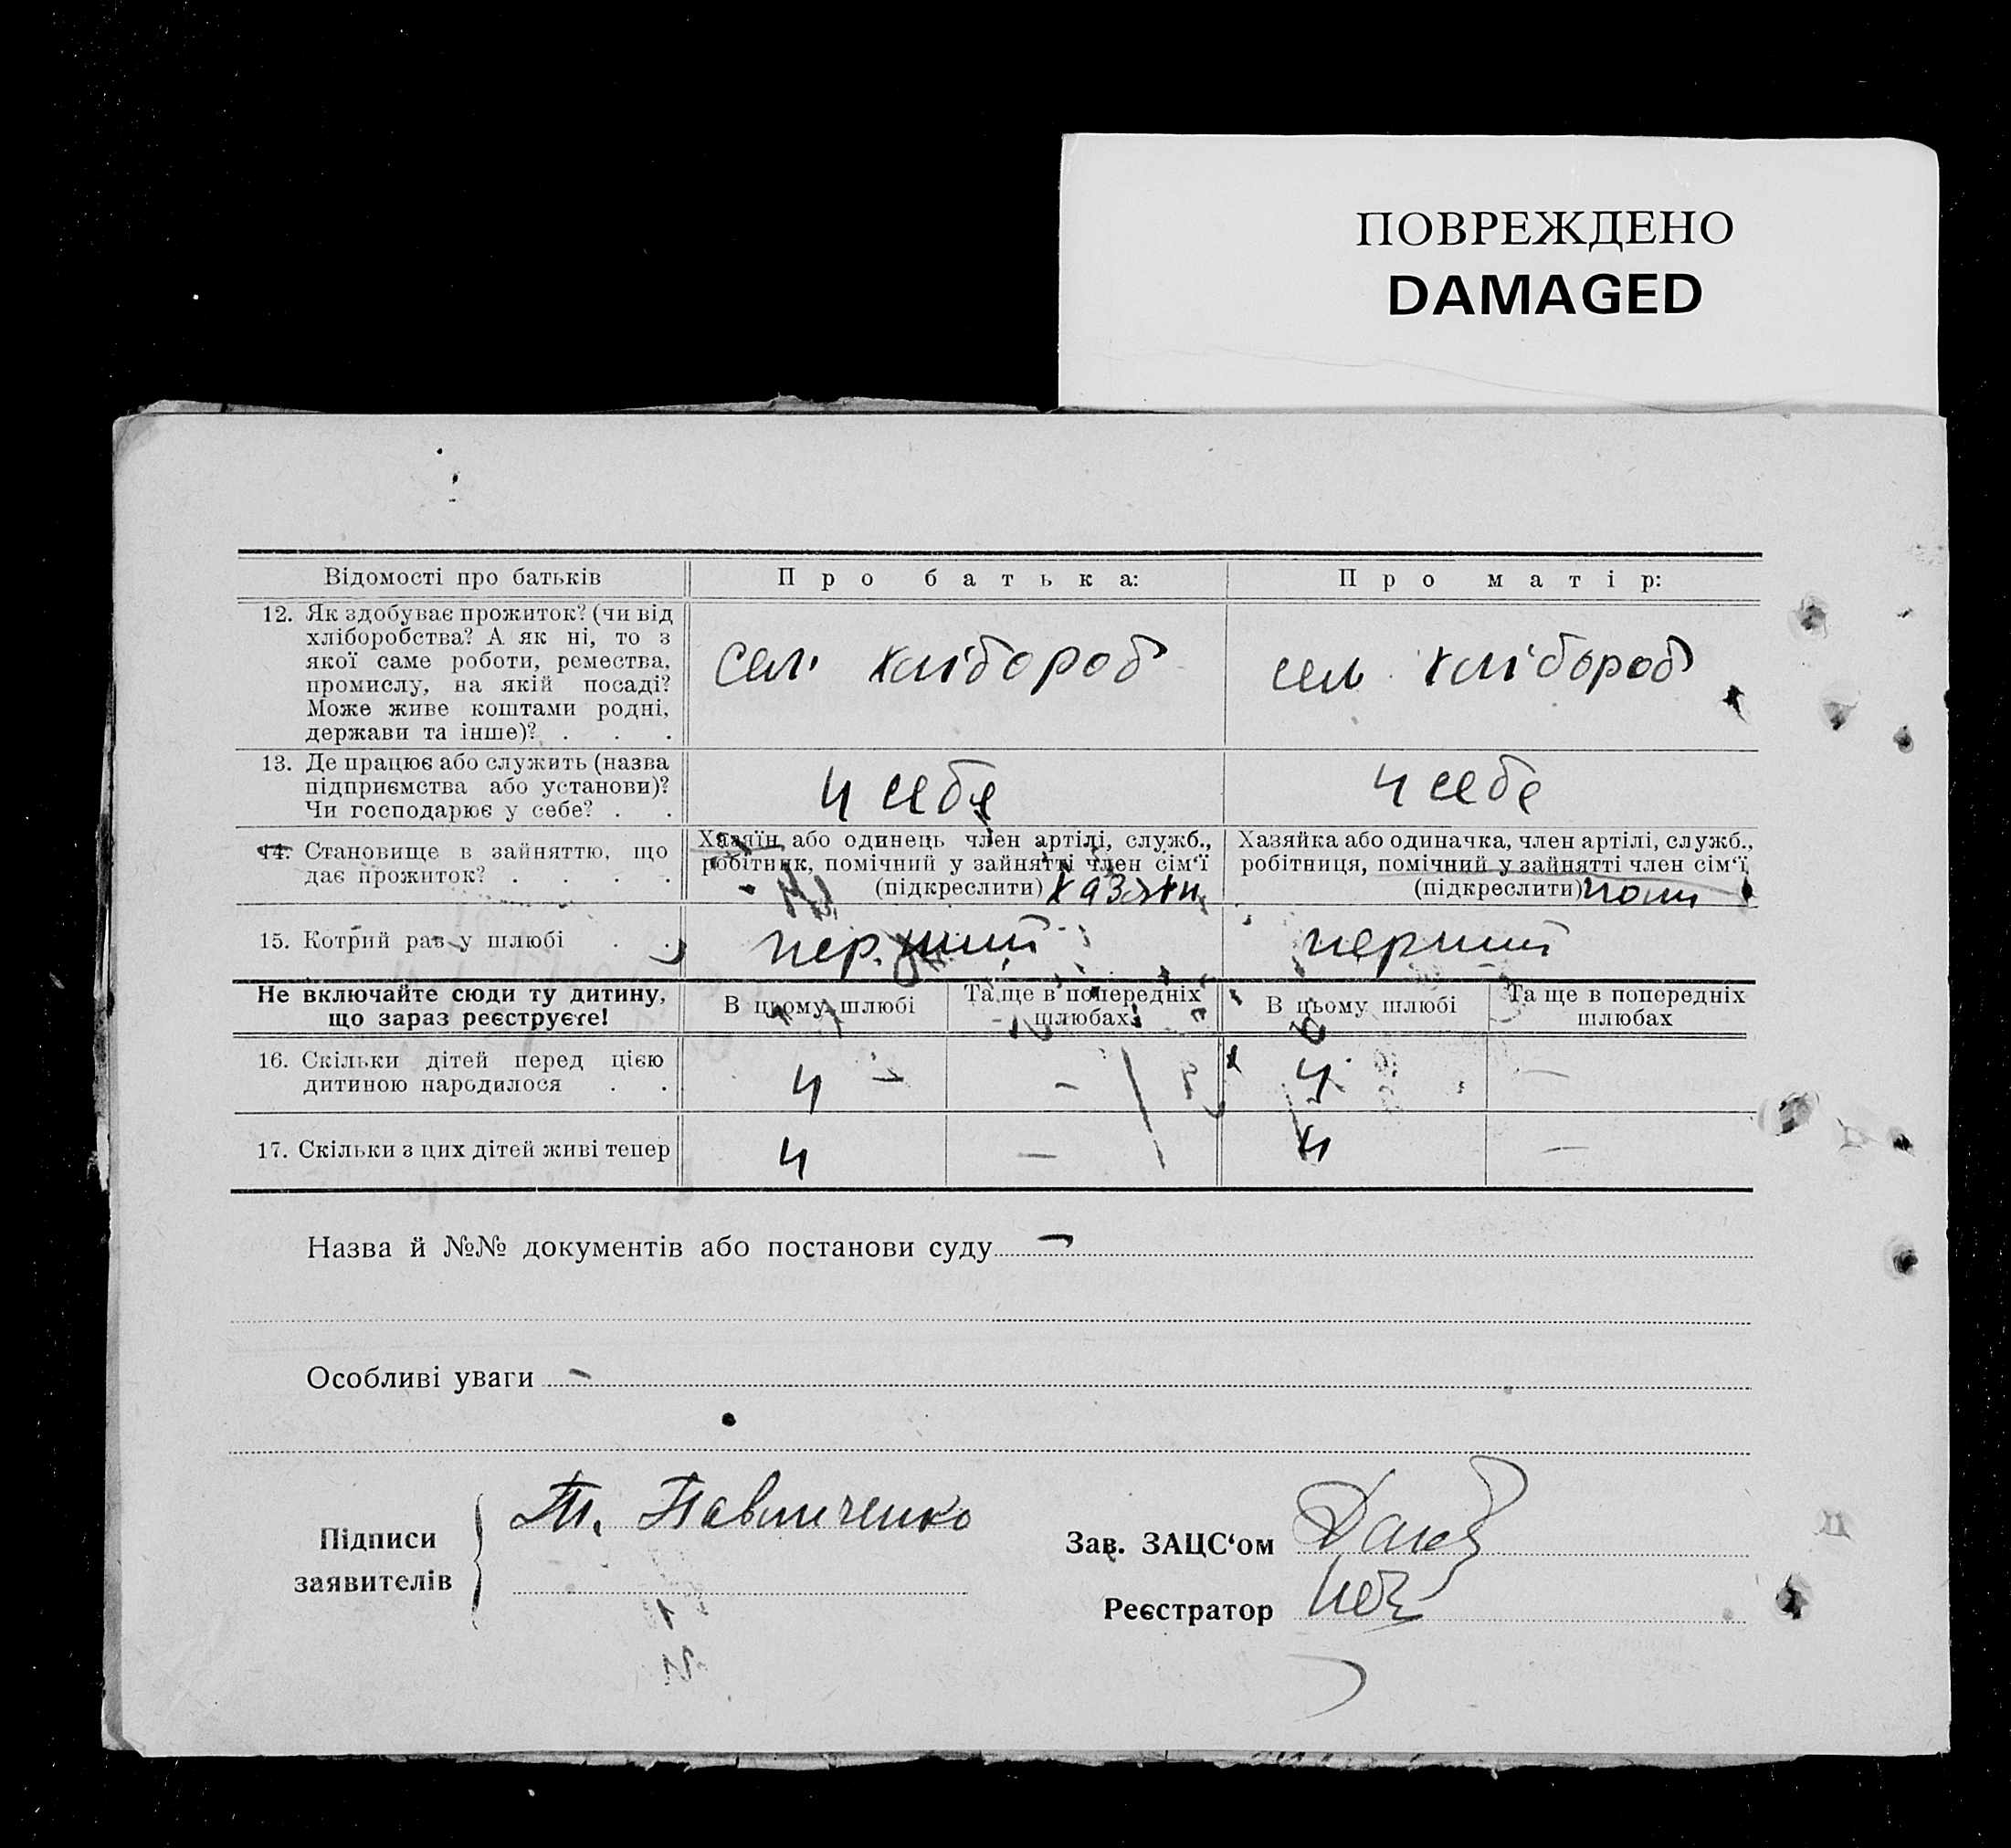 ПОВРЕЖДЕНО
DAMAGED
Відомості про батьків
Про батька:
Про матір:
12. Як здобуває прожиток? (чи від
хліборобства? А як ні, то з
якої саме роботи, ремества,
промислу, на якій посаді?
Може живе коштами родні,
держави та інше)? . . .
сел. хлібороб
сел. хлібороб
13. Де працює або служить (назва
підприємства або установи)?
Чи господарює у себе? . .
у себе
у себе
14. Становище в зайняттю, що
дає прожиток? . . . .
Хазяїн або одинець член артілі, служб.,
робітник, помічний у зайнятті член сім‘ї
(підкреслити) хазяїн
Хазяйка або одиначка, член артілі, служб.,
робітниця, помічний у зайнятті член сім‘ї
(підкреслити) пом
15. Котрий раз у шлюбі . .
перший
перший
Не включайте сюди ту дитину,
що зараз реєструєте!
В цьому шлюбі
Та ще в попередніх
шлюбах
В цьому шлюбі
Та ще в попередніх
шлюбах
16. Скільки дітей перед цією
дитиною народилося . .
4 –
–
4
–
17. Скільки з цих дітей живі тепер
4
–
4
–
Назва й №№ документів або постанови суду –
Особливі уваги –
Підписи
заявителів
Т. Павличенко
Зав. ЗАЦС‘ом
Реєстратор